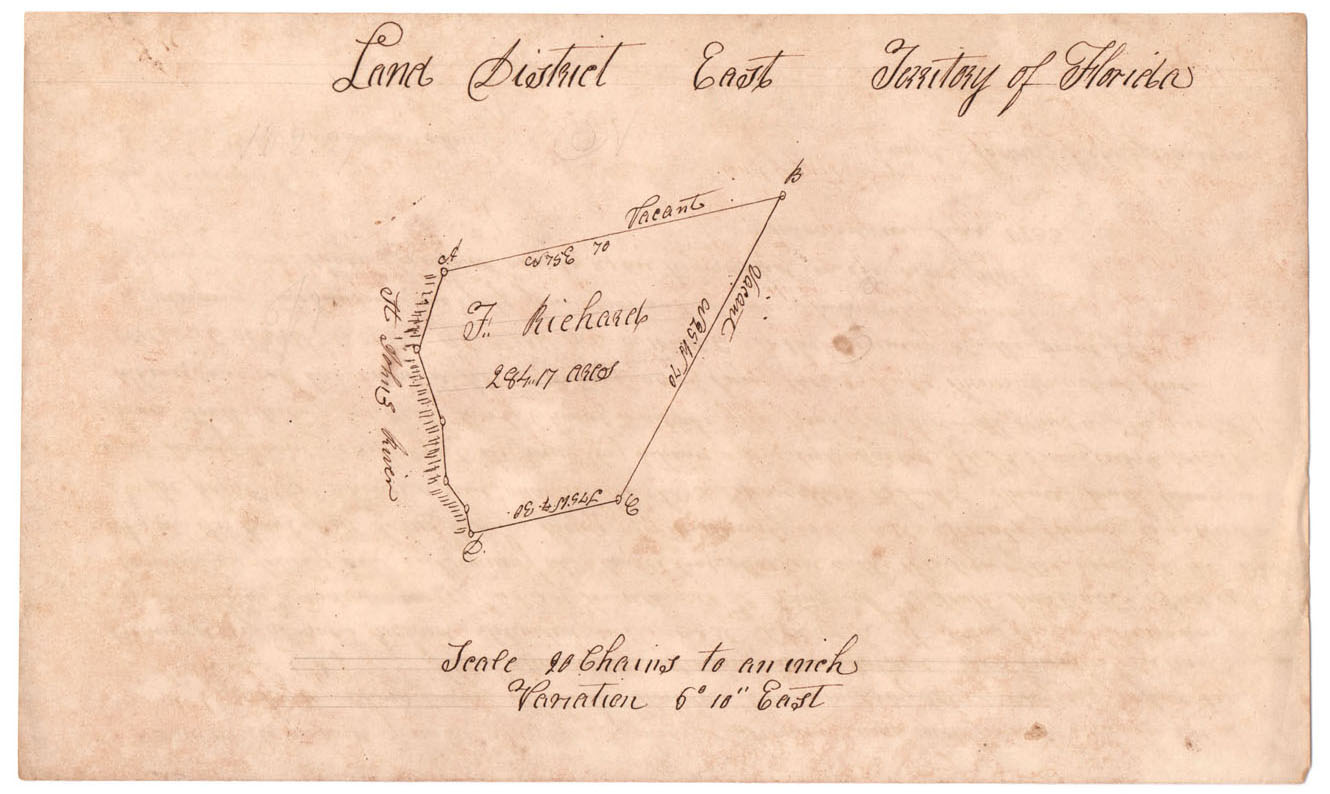 Land District East Territory of Florida
B
Vacant
N 75 E 70
A
Vacant
N 25 W 70
F. Richard
284.17 acres
St Johns River
S 75 W 30
C
D
Scale 20 Chains to an inch
Variation 6° 10" East